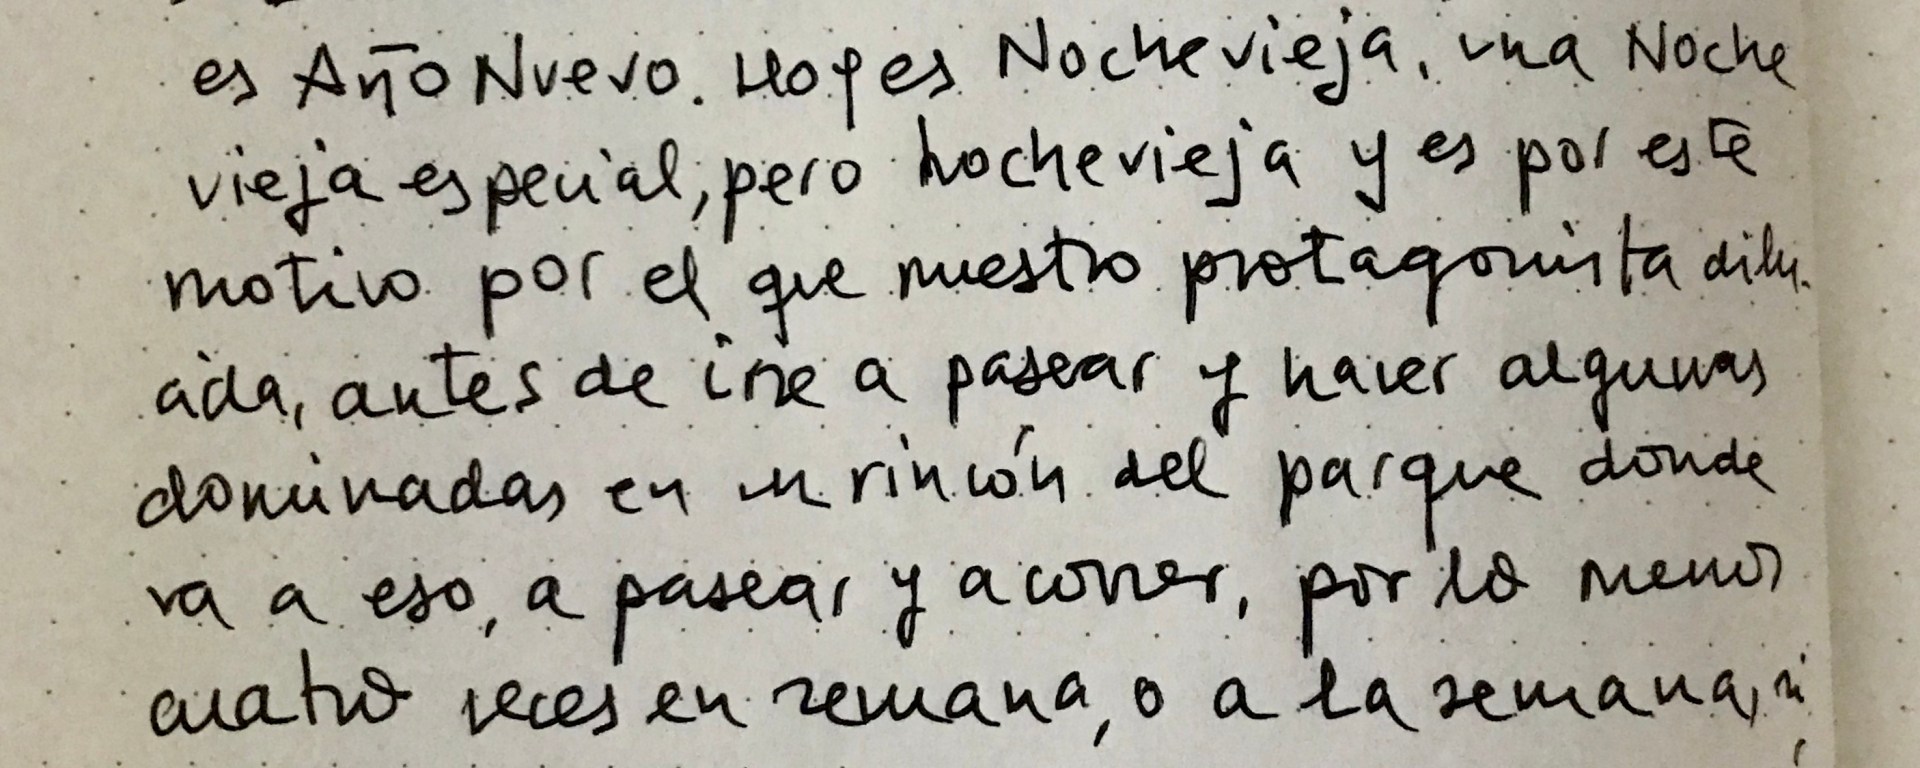 es Año Nuevo. Hoy es Nochevieja, una Noche
vieja especial, pero nochevieja y es por este
motivo por el que nuestro protagonista dilu.
ada, antes de irse a pasear y hacer algunas
dominadas en un rincón del parque donde
va a eso, a pasear y a correr, por lo menos
cuatro veces en semana, o a la semana, si